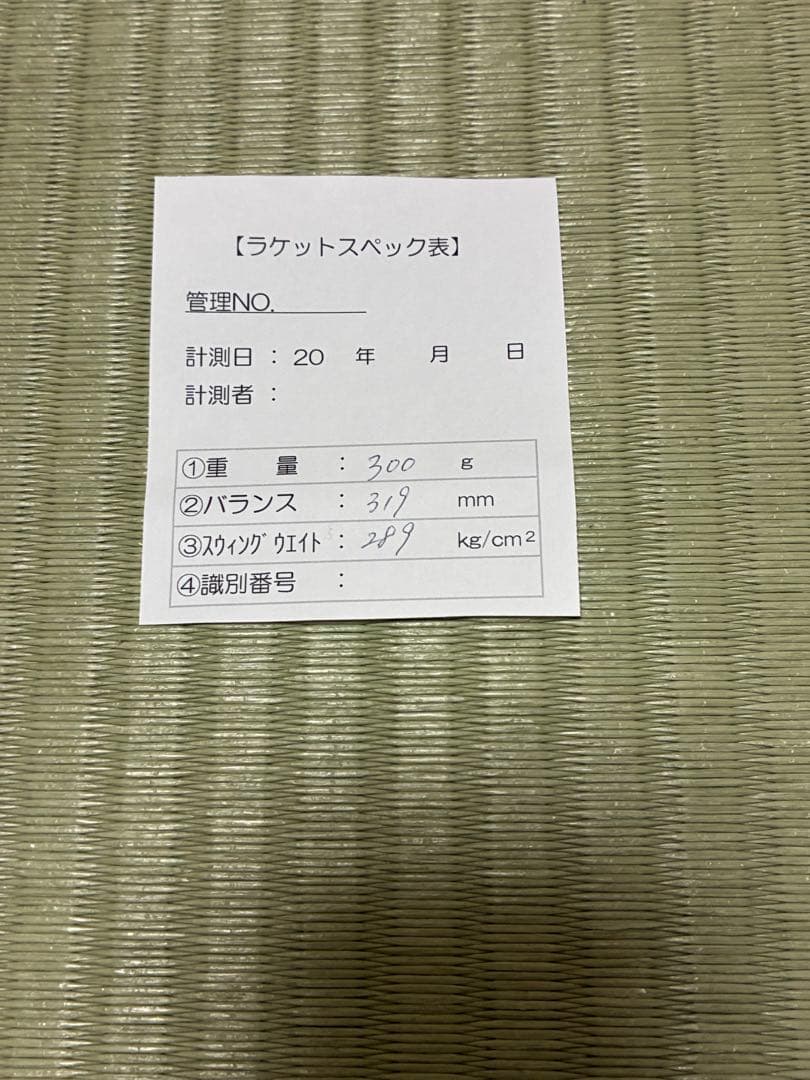 【ラケットスペック表】
管理NO.
計測日 : 20 年 月 日
計測者 :
①重 量 : 300 g
②バランス : 319 mm
③ｽｳｨﾝｸﾞｳｴｲﾄ : 289 kg/cm²
④識別番号 :